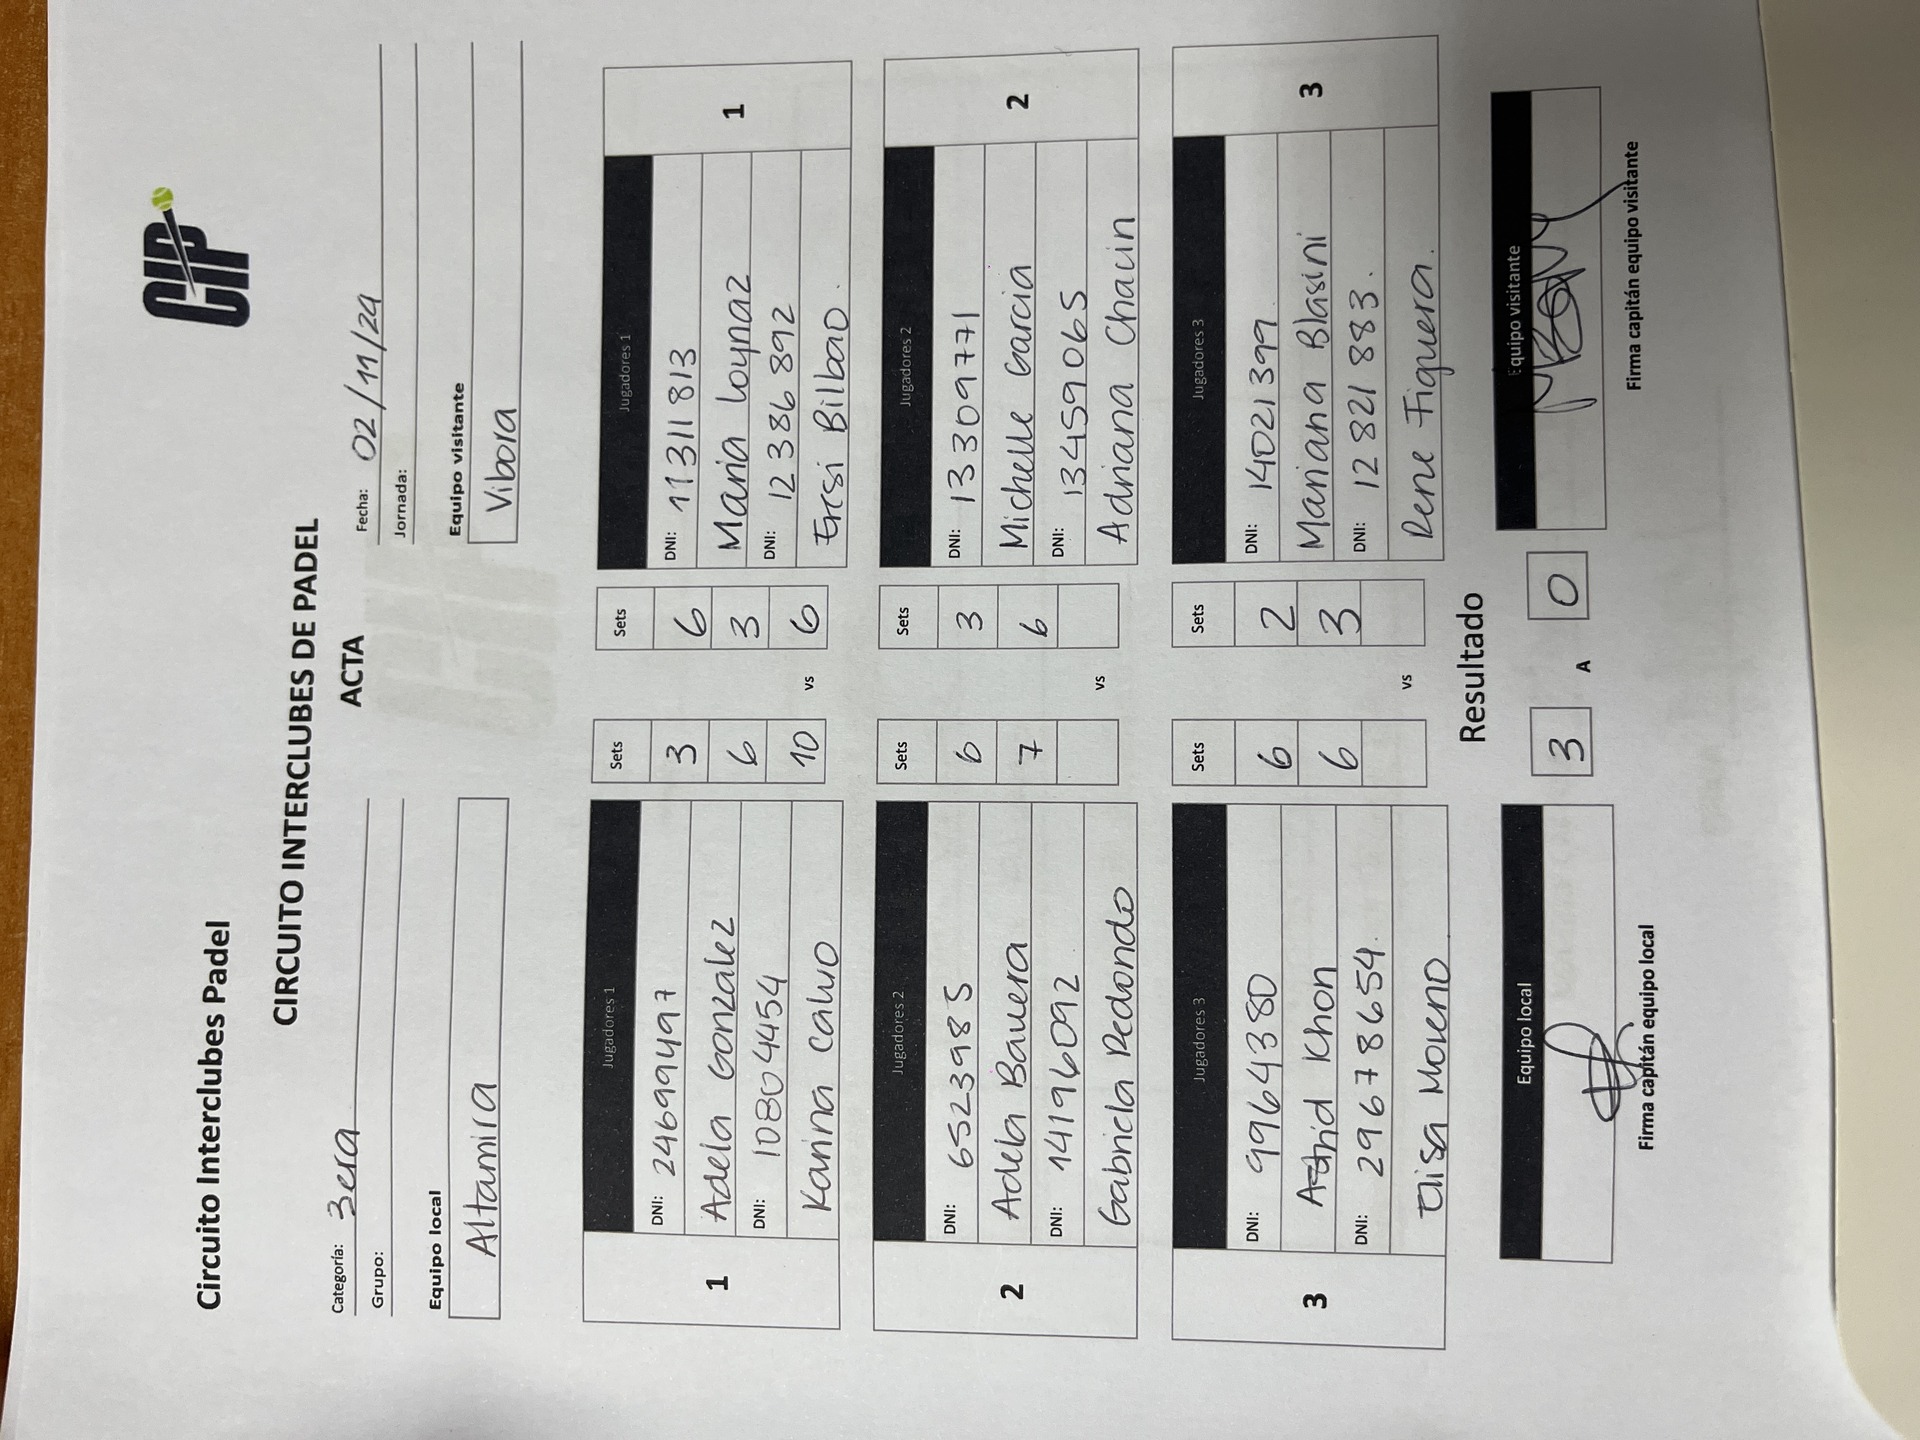 Circuito Interclubes Padel
CIP
CIRCUITO INTERCLUBES DE PADEL
ACTA
Categoría: 3era
Fecha: 02/11/24
Grupo:
Jornada:
Equipo local
Equipo visitante
Altamira
Vibora
Jugadores 1 Sets Sets Jugadores 1
DNI: 24699497 3 6 DNI: 11311813
1 Adela Gonzalez 6 3 Maria Loynaz 1
DNI: 10804454 10 vs 6 DNI: 12386892
Karina Calvo Ersi Bilbao.
Jugadores 2 Sets Sets Jugadores 2
DNI: 6523985 6 3 DNI: 13309771
2 Adela Barrera 7 6 Michelle Garcia 2
DNI: 14196092 vs DNI: 13459065
Gabriela Redondo Adriana Chacin
Jugadores 3 Sets Sets Jugadores 3
DNI: 9964380 6 2 DNI: 14021399
3 Astrid Khon 6 3 Mariana Blasini 3
DNI: 29678654. vs DNI: 12821883.
Elisa Moreno Rene Figuera.
Resultado
Equipo local 3 A 0 Equipo visitante
Firma capitán equipo local
Firma capitán equipo visitante